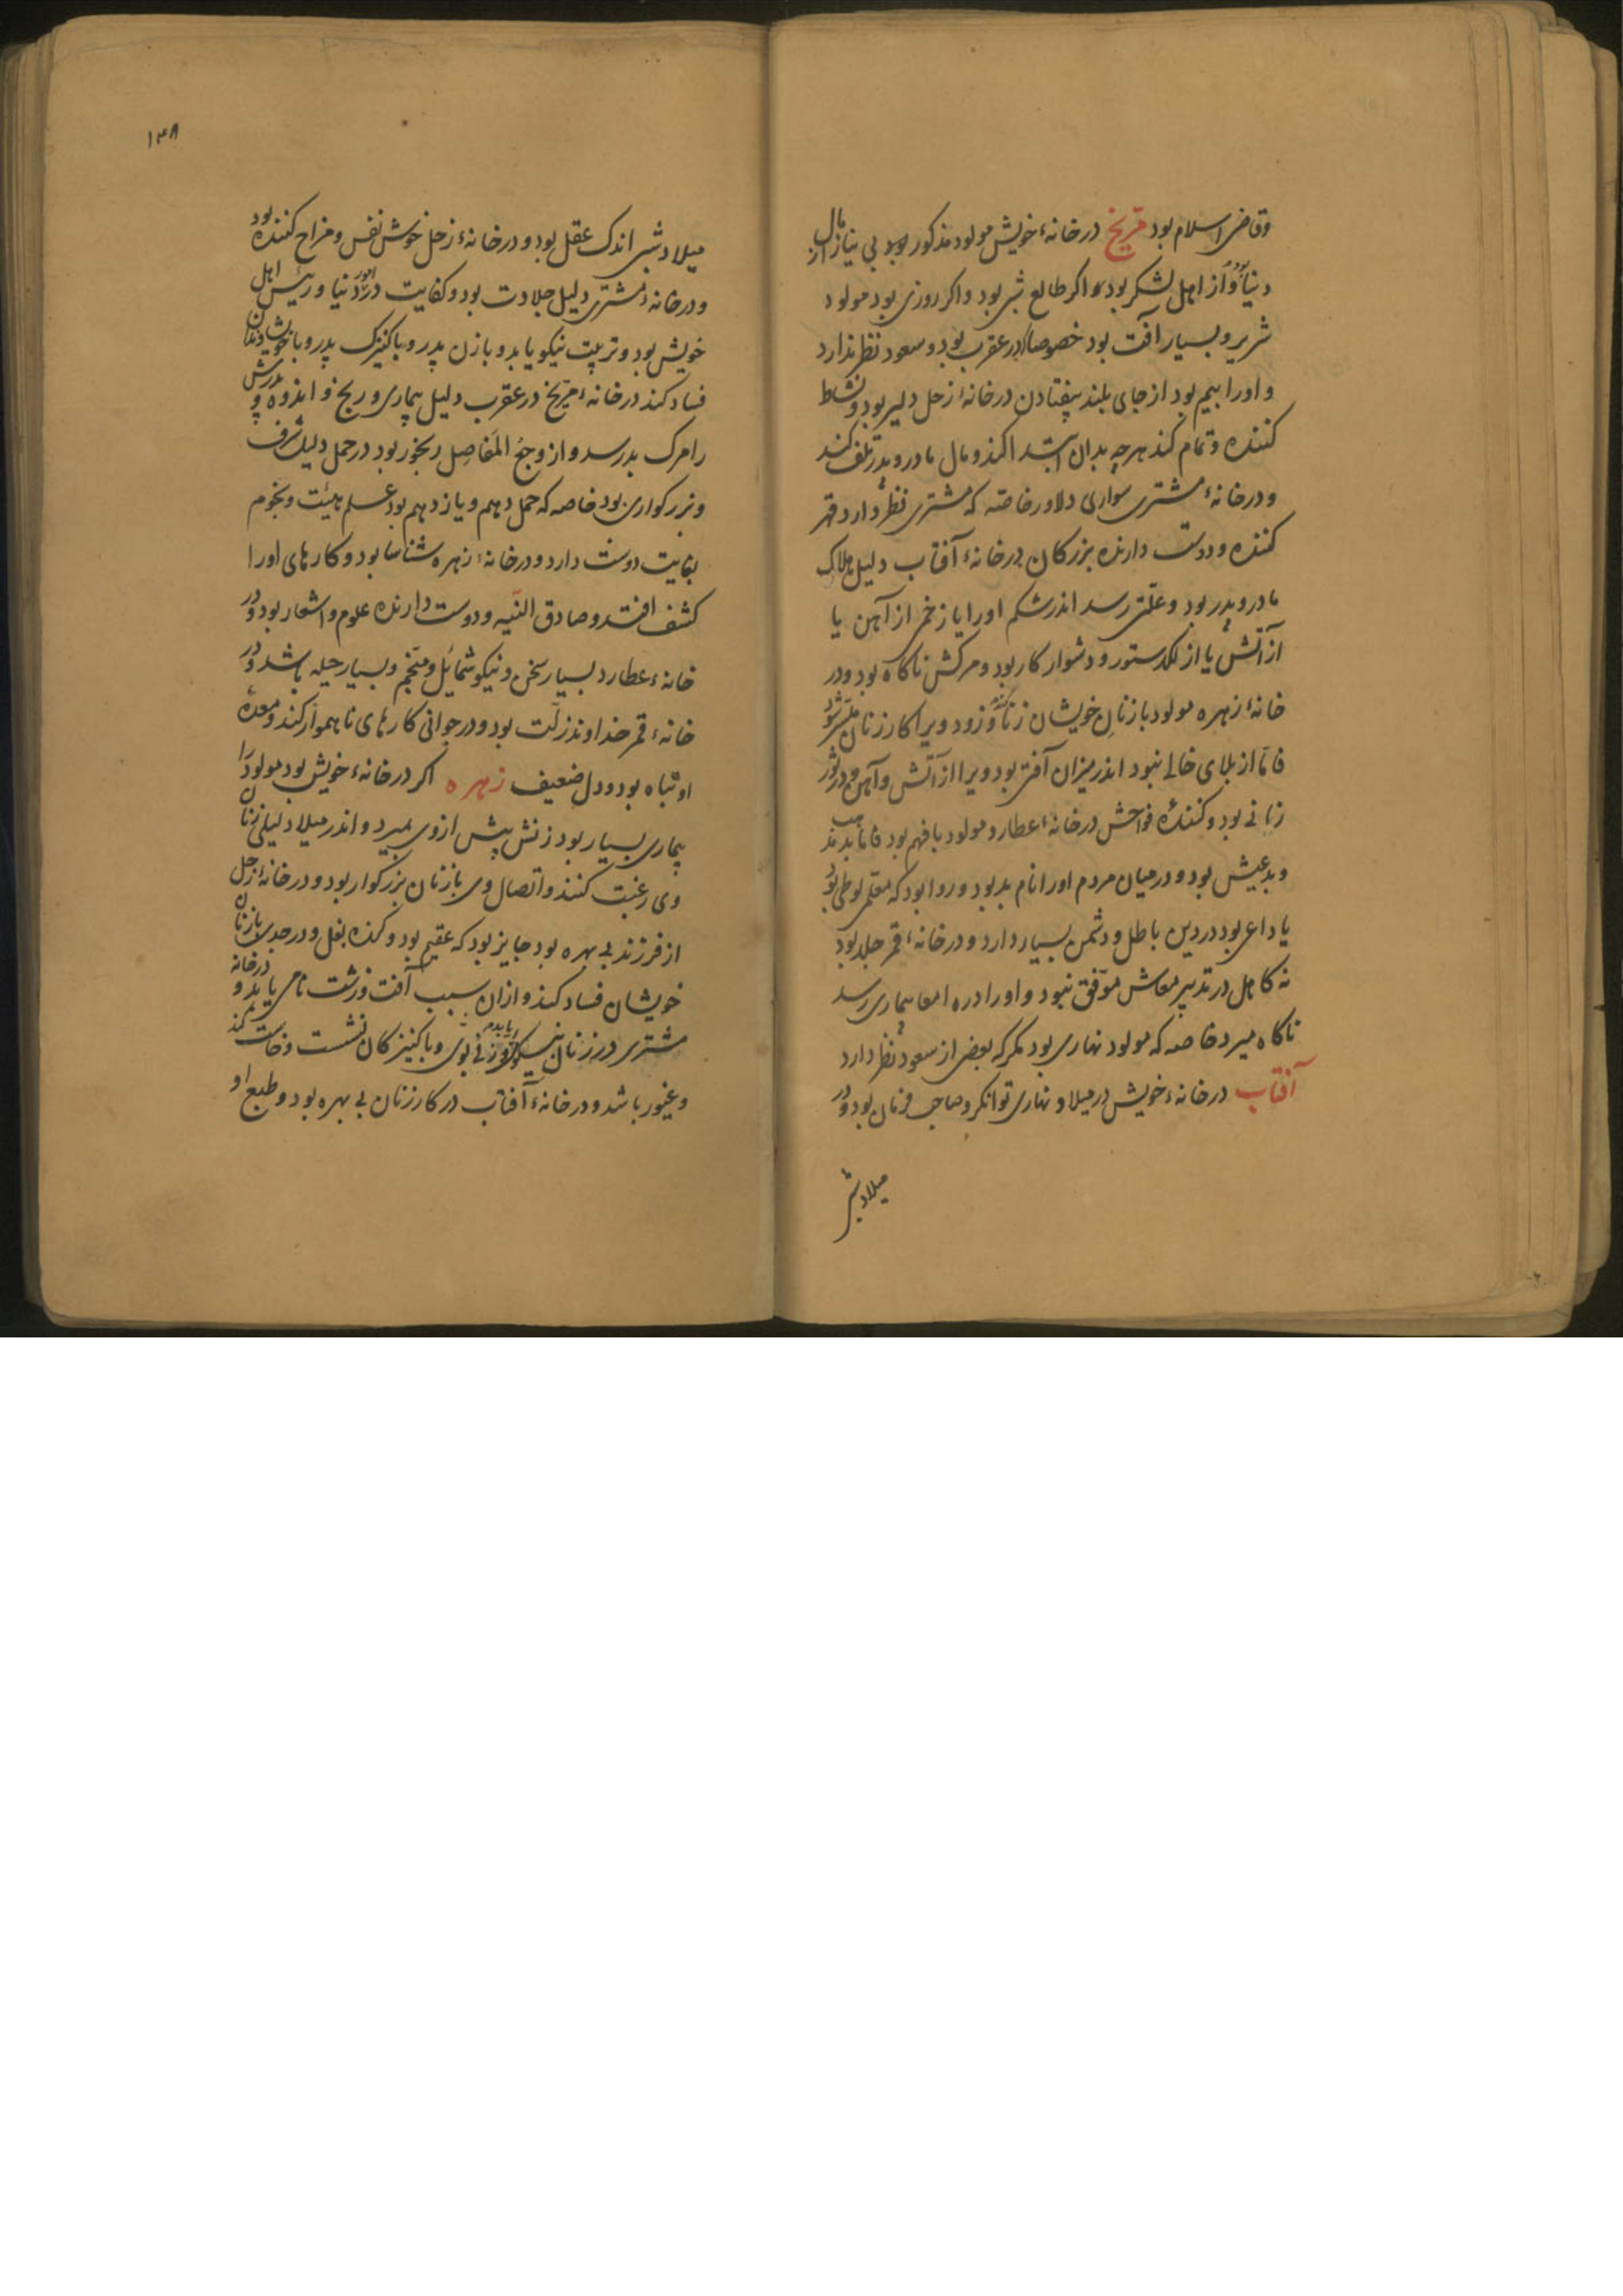 وقاضی اسلام بود مریخ درخانهٔ خویش مولود مذکور بود بی نیاز از مال
دنیا و از اهل لشکر بود اکر طالع شبی بود واکر روزی بود مولود
شریر و بسیار آفت بود خصوصا در عقرب بود و سعود نظر ندارد
و اورا بیم بود از جای بلند بیفتادن درخانهٔ زحل دلیر بود و نشاط
کننده و تمام کند هرچه بدان ابتدا کند و مال مادر و پدر تلف کند
و درخانهٔ مشتری سواری دلاور خاصه که مشتری نظر دارد و قهر
کننده و دوست دارنده بزرکان درخانهٔ آفتاب دلیل هلاک
مادر و پدر بود و علتی رسد اندر شکم اورا یا زخم از آهن یا
از آتش یا از لکد ستور و دشوار کار بود و مرکش ناکاه بود و در
خانهٔ زهره مولود با زنان خویشان زنا کند و زود ویرا کار زنان میسر شود
فاما از بلای خالی نبود اندر میزان آفتی بود ویرا از آتش و آهن و در ثور
زانی بود و کنندهٔ فواحش درخانهٔ عطارد مولود بافهم بود فاما بد مذهب
وبدعیش بود و در میان مردم اورا نام بد بود و روا بود که معلمی لوطی بود
یا داعی بود در دین باطل و دشمن بسیار دارد و درخانهٔ قمر جلد بود
نه کاهل در تدبیر معاش موفق نبود و اورا درد امعا بیماری رسد
ناکاه میرد خاصه که مولود نهاری بود مکر که بعضی از سعود نظر دارد
آفتاب درخانهٔ خویش در میلاد نهاری توانکر و صاحب فرمان بود و در
میلاد شبی
۱۴۸
میلاد شبی اندک عقل بود و درخانهٔ زحل خوش نفس و مزاح کننده بود
و درخانهٔ مشتری دلیل جلادت بود و کفایت در امور دنیا و رئیس اهل
خویش بود و تربیت نیکو یابد و با زن پدر و با کنیزک پدر و با خویشاوندان
فساد کند درخانهٔ مریخ در عقرب دلیل بیماری و رنج و اندوه و پدرش
را مرک بد رسد و از وجع المفاصل رنجور بود در حمل دلیل شرف
و بزرکواری بود خاصه که حمل دهم و یازدهم بود علم هیئت و نجوم
بغایت دوست دارد و درخانهٔ زهره شناسا بود و کارهای اورا
کشف افتد و صادق النیه و دوست دارنده علوم و اشعار بود و در
خانهٔ عطارد بسیار سخن و نیکو شمائل و منجم و بسیار حیله باشد و در
خانهٔ قمر خداوند زلت بود و در جوانی کارهای ناهموار کند و معدهٔ
او تباه بود و دل ضعیف زهره اکر درخانهٔ خویش بود مولود را
بیماری بسیار بود زنش پیش از وی بمیرد و اندر میلاد لیلی زنان
وی رغبت کنند و اتصال وی با زنان بزرکوار بود و درخانهٔ زحل
از فرزند بی بهره بود جایز بود که عقیم بود و کنده بغل و در جدی با زنان
خویشان فساد کند و از ان سبب آفت و زشت نامی یابد و درخانه
مشتری در زنان نیکو و زنی و با کنیزکان نشست و خاست کند
و غیور باشد و درخانهٔ آفتاب در کار زنان بی بهره بود و طبع او